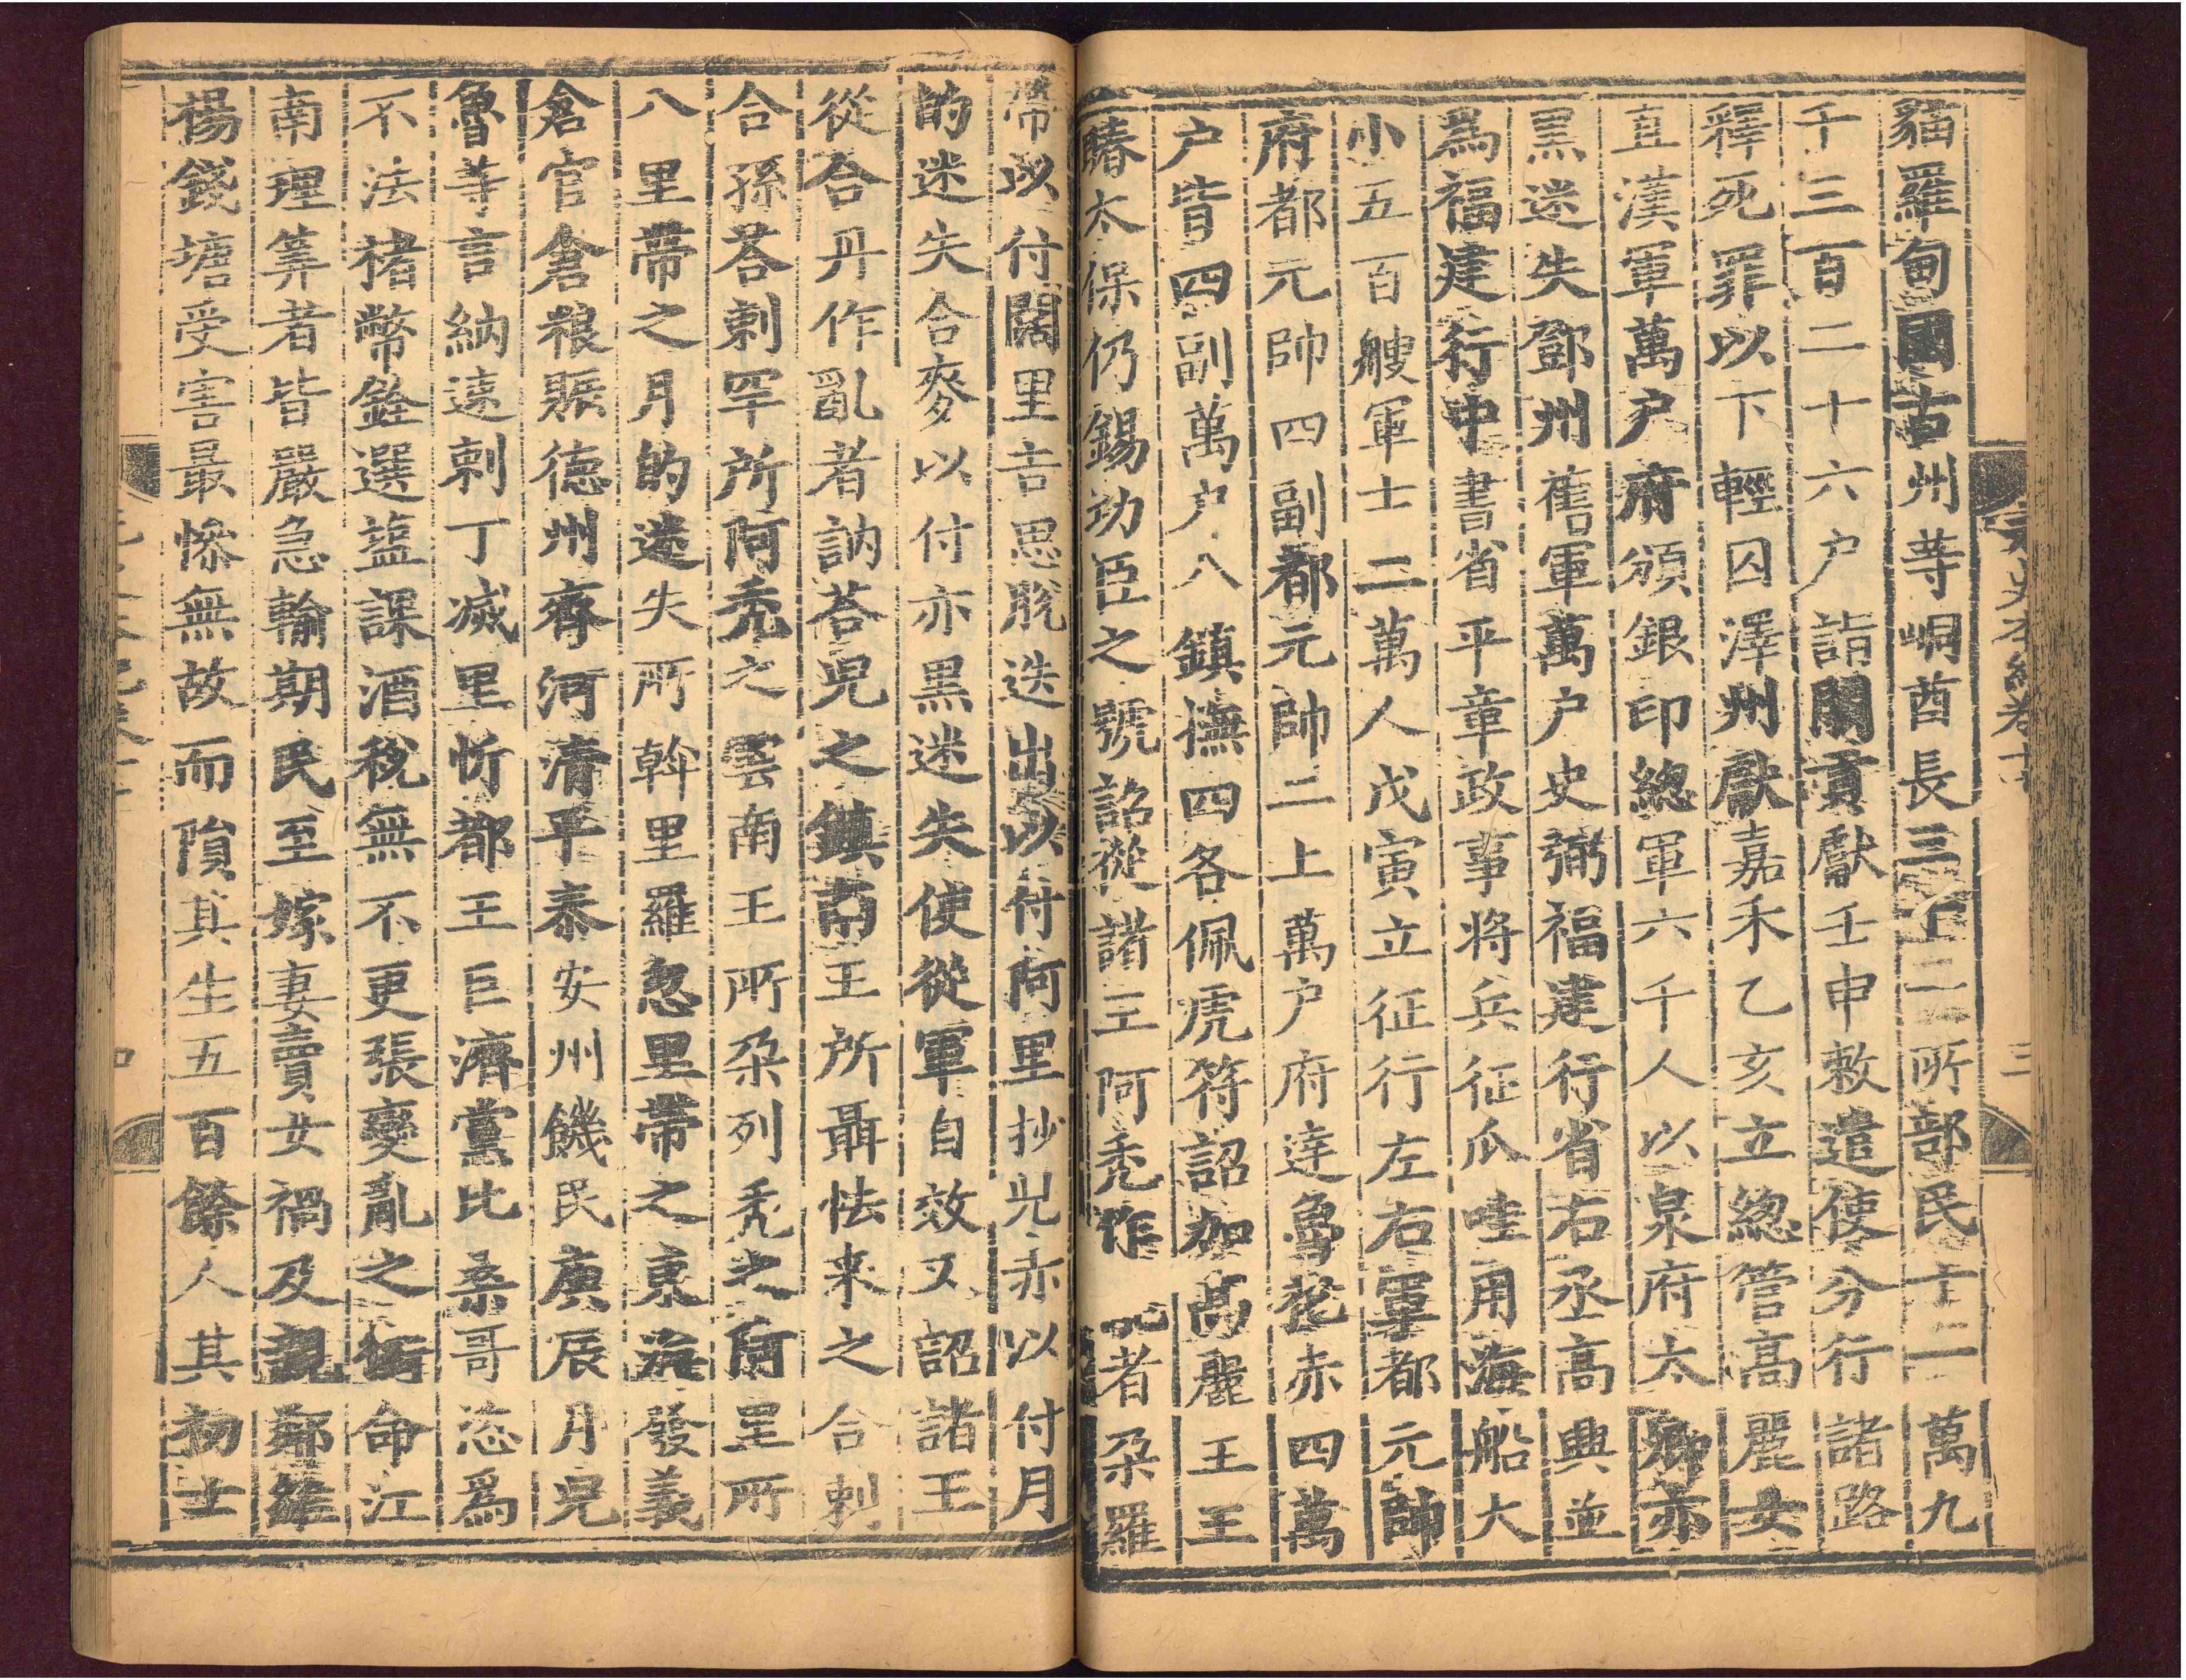 貓羅甸國古州等峒酋長三十一所部民十二萬九
千三百二十六户詣闕貢獻壬申敕遣使分行諸路
釋死罪以下輕囚澤州獻嘉禾乙亥立緫管高麗女
直漢軍萬户府頒銀印緫軍六千人以泉府太卿亦
黑迷失鄧州舊軍萬户史弼福建行省右丞高興並
爲福建行中書省平章政事将兵征爪哇用海船大
小五百艘軍士二萬人戊寅立征行左右軍都元帥
府都元帥四副都元帥二上萬户府達魯花赤四萬
户皆四副萬户八鎮撫四各佩虎符詔加高麗王王
賰太保仍錫功臣之號詔從諸王阿秃作者朶羅
帶以付闊里吉思脱迭出以付阿里抄児赤以付月
的迷失合麥以付亦黒迷失使從軍自效又詔諸王
從合丹作亂者訥荅児之鎮南王所聶怯来之合剌
合孫荅剌罕所阿秃之雲南王所朶列秃之阿里所
八里帶之月的迷失所斡里羅忽里帶之東海發義
倉官倉粮賑德州齊河清平泰安州饑民庚辰月児
魯等言納速剌丁滅里忻都王巨濟黨比桑哥恣爲
不法楮幣銓選鹽課酒稅無不更張變亂之銜命江
南理筭者皆嚴急輸期民至嫁妻賣女禍及親鄰維
楊錢塘受害最慘無故而隕其生五百餘人其初士
三